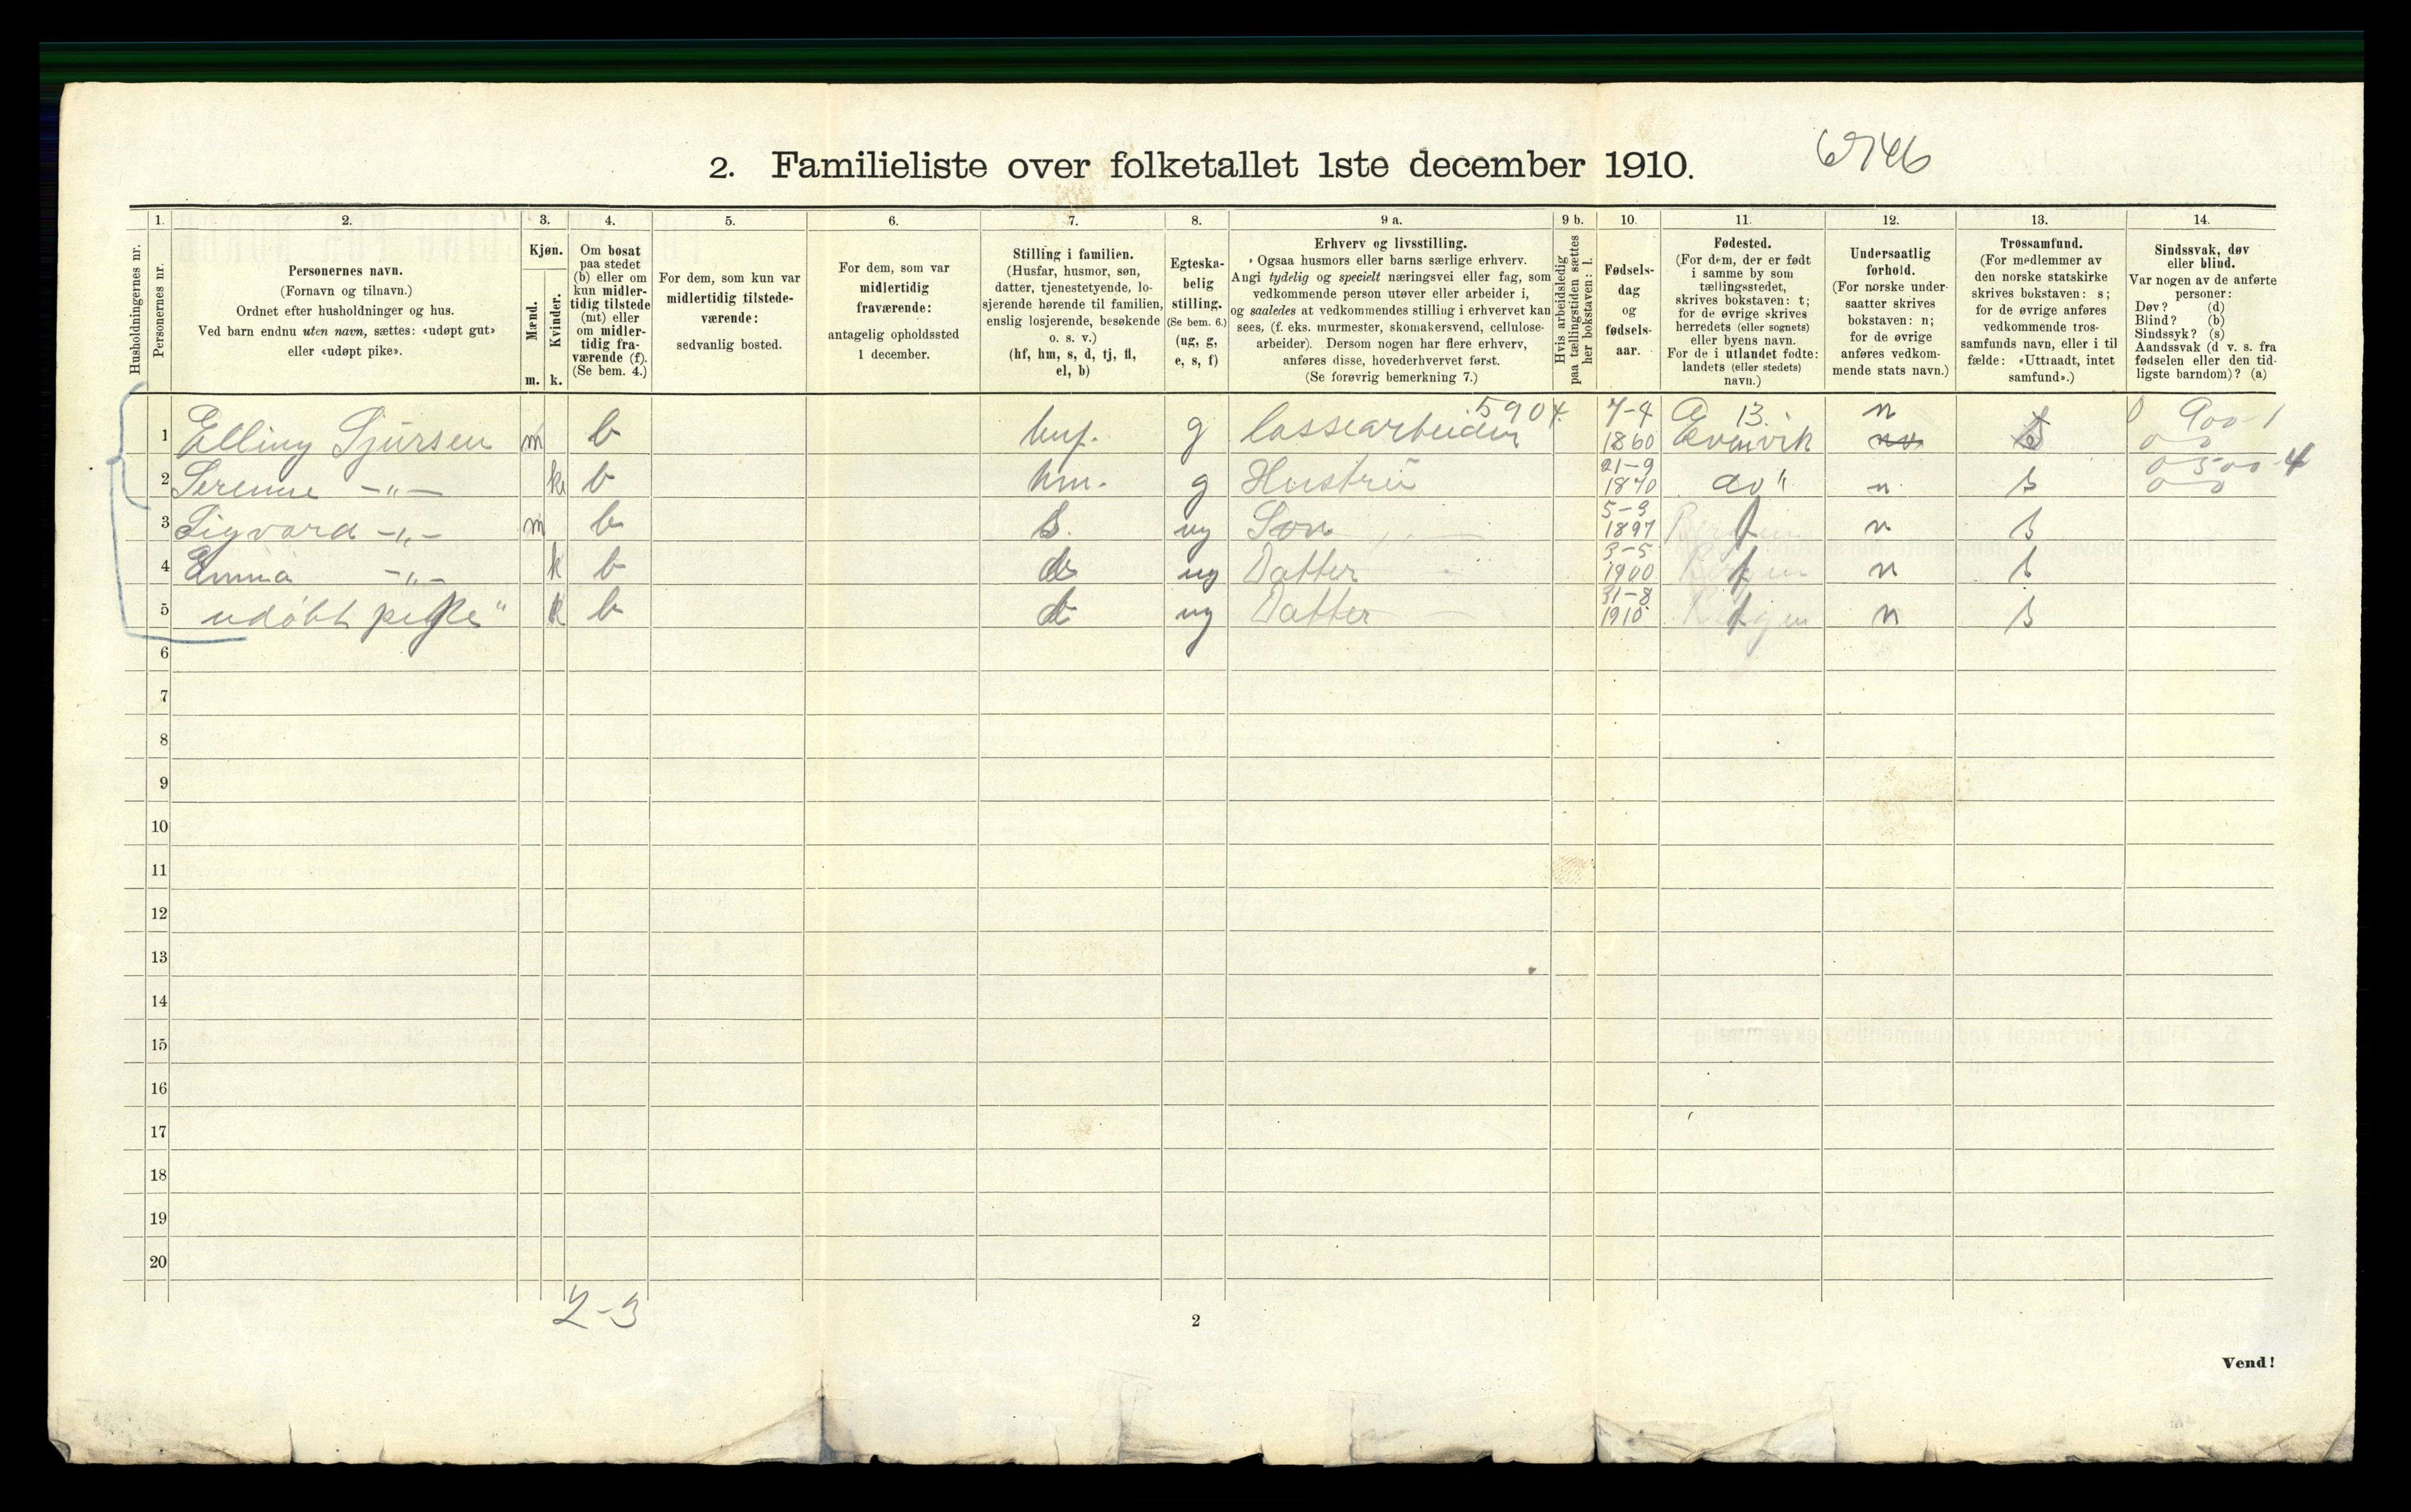 2. Familieliste over folketallet 1ste december 1910.
6746
Husholdningernes nr.
1.
Personernes nr.
2.
Personernes navn.
(Fornavn og tilnavn.)
Ordnet efter husholdninger og hus.
Ved barn endnu uten navn, sættes: «udøpt gut»
eller «udøpt pike».
3.
Kjøn.
Mænd.
Kvinder.
m. k.
4.
Om bosat
paa stedet
(b) eller om
kun midler-
tidig tilstede
(mt) eller
om midler-
tidig fra-
værende (f).
(Se bem. 4.)
5.
For dem, som kun var
midlertidig tilstede-
værende:
sedvanlig bosted.
6.
For dem, som var
midlertidig
fraværende:
antagelig opholdssted
1 december.
7.
Stilling i familien.
(Husfar, husmor, søn,
datter, tjenestetyende, lo-
sjerende hørende til familien,
enslig losjerende, besøkende
o. s. v.)
(hf, hm, s, d, tj, fl,
el, b)
8.
Egteska-
belig
stilling.
(Se bem. 6.)
(ug, g,
e, s, f)
9 a.
Erhverv og livsstilling.
Ogsaa husmors eller barns særlige erhverv.
Angi tydelig og specielt næringsvei eller fag, som
vedkommende person utøver eller arbeider i,
og saaledes at vedkommendes stilling i erhvervet kan
sees, (f. eks. murmester, skomakersvend, cellulose-
arbeider). Dersom nogen har flere erhverv,
anføres disse, hovederhvervet først.
(Se forøvrig bemerkning 7.)
9 b.
Hvis arbeidsledig
paa tællingstiden sættes
her bokstaven: l.
10.
Fødsels-
dag
og
fødsels-
aar.
11.
Fødested.
(For dem, der er født
i samme by som
tællingsstedet,
skrives bokstaven: t;
for de øvrige skrives
herredets (eller sognets)
eller byens navn.
For de i utlandet fødte:
landets (eller stedets)
navn.)
12.
Undersaatlig
forhold.
(For norske under-
saatter skrives
bokstaven: n;
for de øvrige
anføres vedkom-
mende stats navn.)
13.
Trossamfund.
(For medlemmer av
den norske statskirke
skrives bokstaven: s;
for de øvrige anføres
vedkommende tros-
samfunds navn, eller i til
fælde: «Uttraadt, intet
samfund».)
14.
Sindssvak, døv
eller blind.
Var nogen av de anførte
personer:
Døv? (d)
Blind? (b)
Sindssyk? (s)
Aandssvak (d v. s. fra
fødselen eller den tid-
ligste barndom)? (a)
1 Elling Sjursen m b huf. g lossearbeider 5904. 7-4 1860 13. Evenvik n s 900-1
2 Serenne -"- k b hm. g Hustru 21-9 1870 do" n s 0 500-4
3 Sigvard -"- m b s. ug Son 5-9 1897 t n s
4 Emma -"- k b d ug Datter 3-5 1900 t n s
5 udøbt pike" k b d ug Datter 31-8 1910 t n s
6
7
8
9
10
11
12
13
14
15
16
17
18
19
20
2-3
2
Vend!